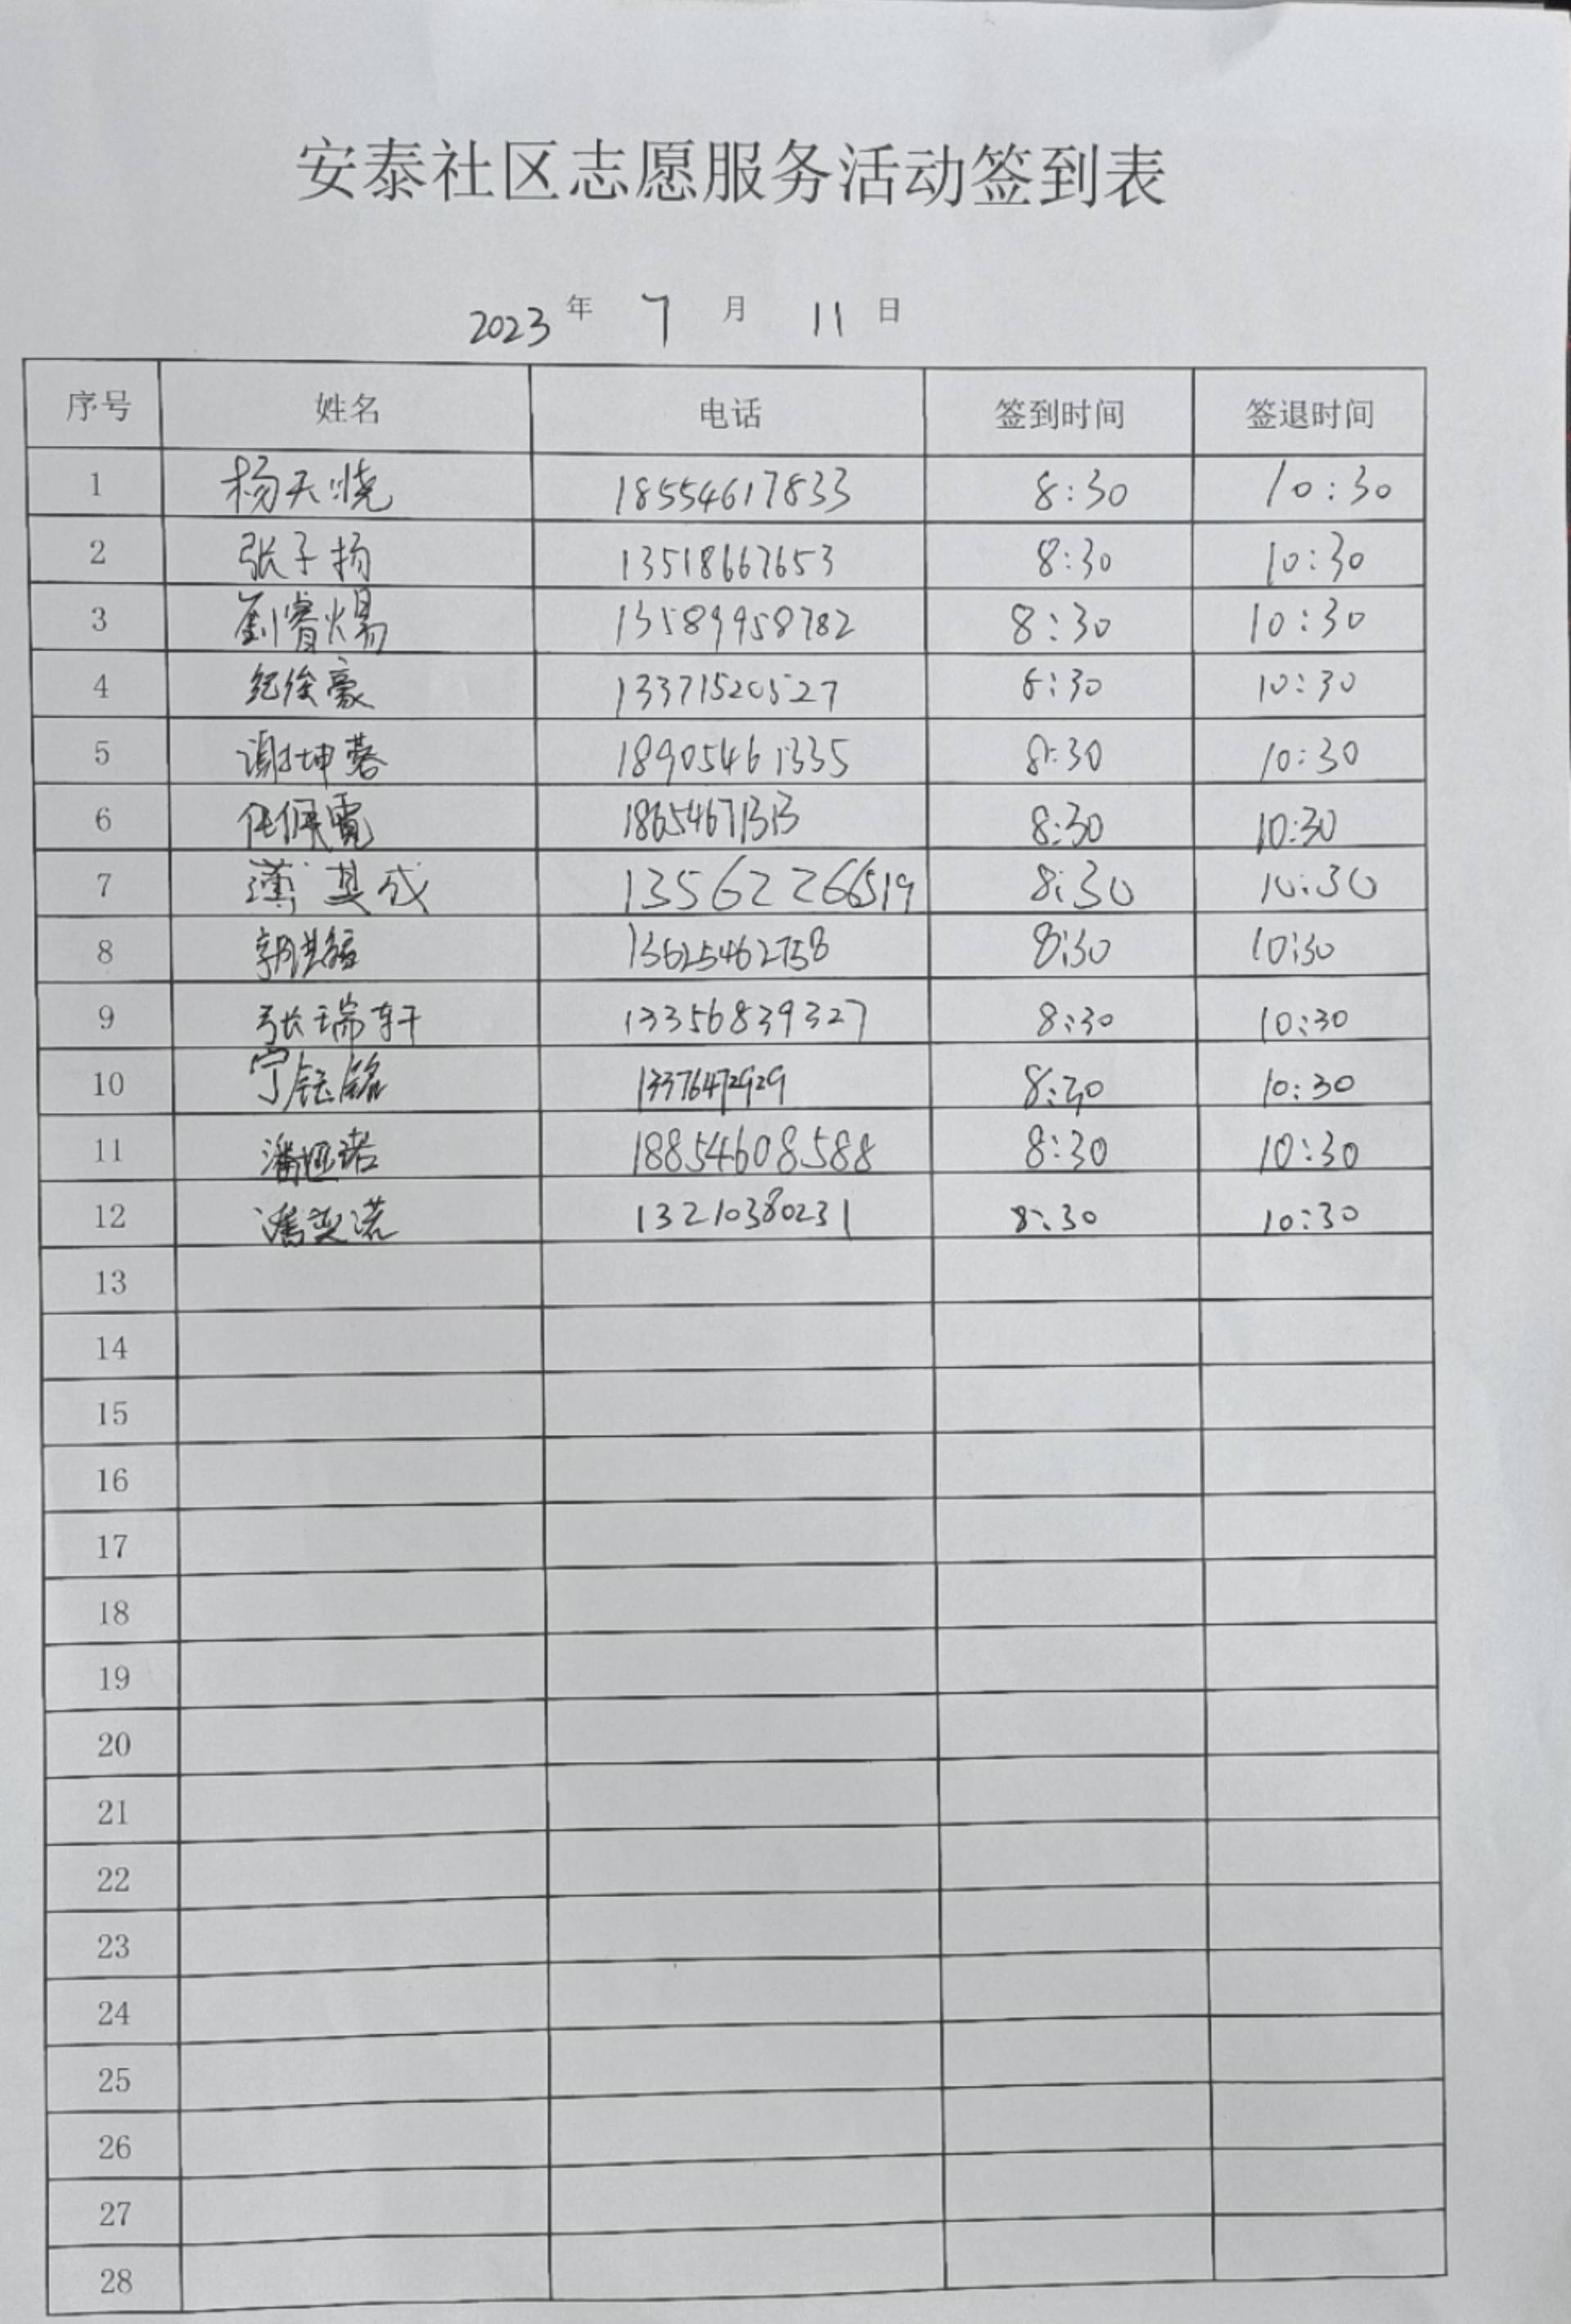 安泰社区志愿服务活动签到表
2023 年 7 月 11 日
序号 姓名 电话 签到时间 签退时间
1 杨天晓 18554617833 8:30 10:30
2 张子扬 13518667653 8:30 10:30
3 刘睿煬 13589958782 8:30 10:30
4 纪俊豪 13371520527 8:30 10:30
5 谢坤蓉 18905461335 8:30 10:30
6 18654671313 8:30 10:30
7 薄其成 13562266519 8:30 10:30
8 13625462758 8:30 10:30
9 张瑞轩 13356839327 8:30 10:30
10 宁钰铭 13376472929 8:30 10:30
11 潘垭诺 18854608588 8:30 10:30
12 潘奕诺 13210380231 8:30 10:30
13
14
15
16
17
18
19
20
21
22
23
24
25
26
27
28